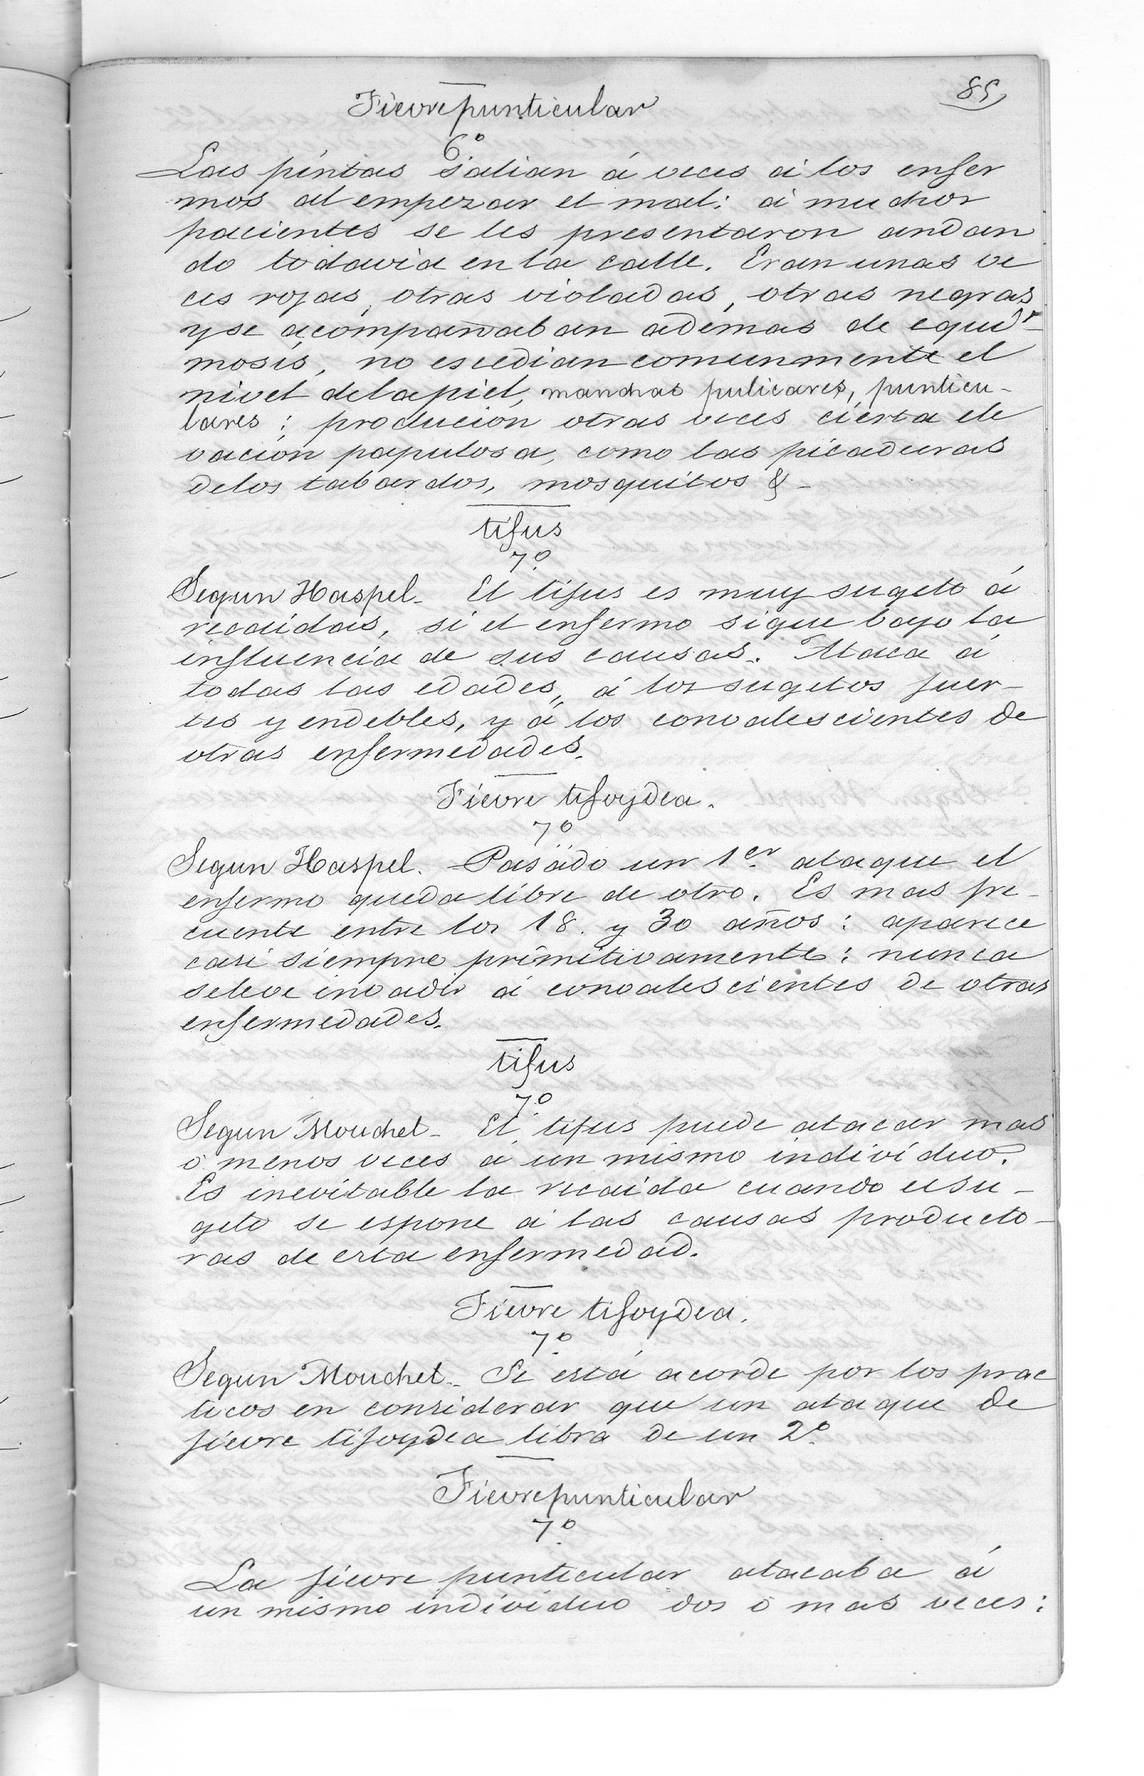 85,
Fievre punticular
6º
Las pintas salian á veces á los enfer
mos al empezar el mal: á muchos
pacientes se les presentaron andan
do todavia en la calle. Eran unas ve
ces rojas, otras violadas, otras negras
y se acompañaban además de equí
mosis, no escedian comunmente el
nivel de la piel, manchas pulicares, punticu-
lares; producion otras veces cierta ele
vación papulosa, como las picaduras
de los tabardos, mosquitos &-
tifus
7º
Segun Haspel- El tifus es muy sugeto á
recaidas, si el enfermo sigue bajo la
influencia de sus causas. Ataca á
todas las edades, á los sugetos fuer-
tes y endebles, y á los convalescientes de
otras enfermedades.
Fievre tifoydea.
7º
Segun Haspel. Pasado un 1er ataque el
enfermo queda libre de otro. Es mas fre-
cuente entre los 18. y 30 años: aparece
casi siempre primitivamente: nunca
se le ve invadir á convalescientes de otras
enfermedades.
tifus
7º
Segun Mouchet- El tifus puede atacar mas
ó menos veces a un mismo indivíduo.
Es inevitable la recaida cuando el su-
geto se espone á las causas producto-
ras de esta enfermedad.
Fievre tifoydea.
7º
Segun Mouchet.- Se está acorde por los prac
ticos en considerar que un ataque de
fievre tifoydea libra de un 2º
Fievre punticular
7º
La fievre punticular atacaba á
un mismo indivíduo dos ó mas veces: